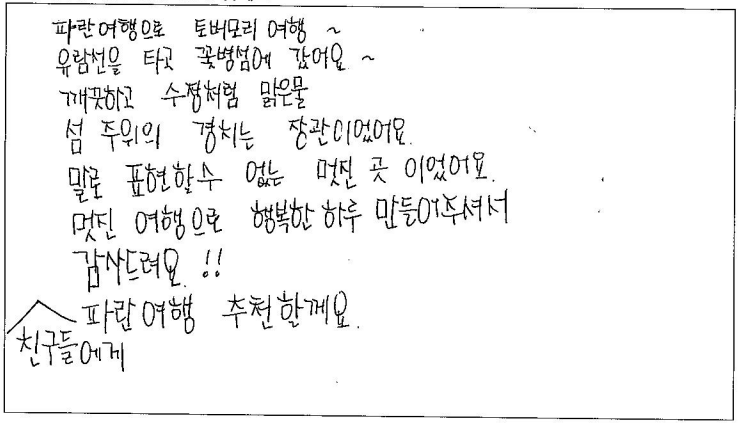 파란여행으로 토버모리 여행 ~
유람선을 타고 꽃병섬에 갔어요 ~
깨끗하고 수정처럼 맑은물
섬 주위의 경치는 장관이었어요.
말로 표현할수 없는 멋진 곳 이었어요.
멋진 여행으로 행복한 하루 만들어주셔서
감사드려요. !!
파란여행 추천할께요.
친구들에게